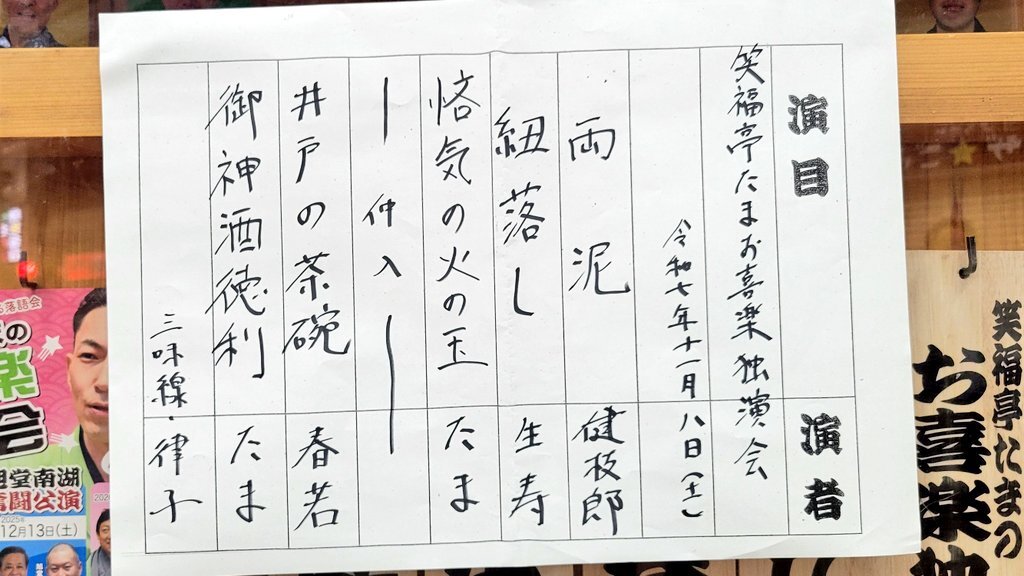 演目 演者
笑福亭たまお喜楽独演会
令和七年十一月八日(土)
両泥 健枝郎
紐落し 生寿
悋気の火の玉 たま
― 仲入 ―
井戸の茶碗 春若
御神酒徳利 たま
三味線・律子
笑福亭たまの
お喜楽独
落語会
の
楽
会
堂南湖
奮闘公演
2025年
12月13日(土)